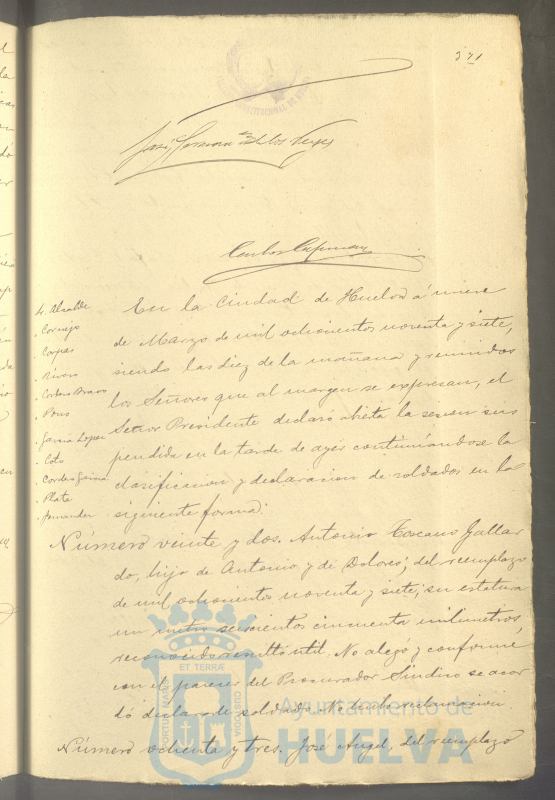 371
José
Carlos
S. Alcalde
" Cornejo
" Corpas
" Rivas
" Cordero Bravo
" Pons
" Garcia Lopez
" Coto
" Cordero Garcia
" Plata
" Fernandez
En la Ciudad de Huelva á nueve
de Marzo de mil ochocientos noventa y siete,
siendo las diez de la mañana y reunidos
los Señores que al margen se expresan, el
Señor Presidente declaró abierta la sesion sus
pendida en la tarde de ayer continuándose la
clasificacion y declaracion de soldados en la
siguiente forma:
Número veinte y dos. Antonio Toscano Gallar
do, hijo de Antonio y de Dolores; del reemplazo
de mil ochocientos noventa y siete; su estatura
un metro seiscientos cincuenta milimetros,
reconocido resultó útil. No alegó y conforme
con el parecer del Procurador Sindico se acor
dó declararle soldado. No hubo reclamacion
Número ochenta y tres. José Angel, del reemplazo
PORTUS MARIS ET TERRÆ CUSTODIA
Ayuntamiento de
HUELVA